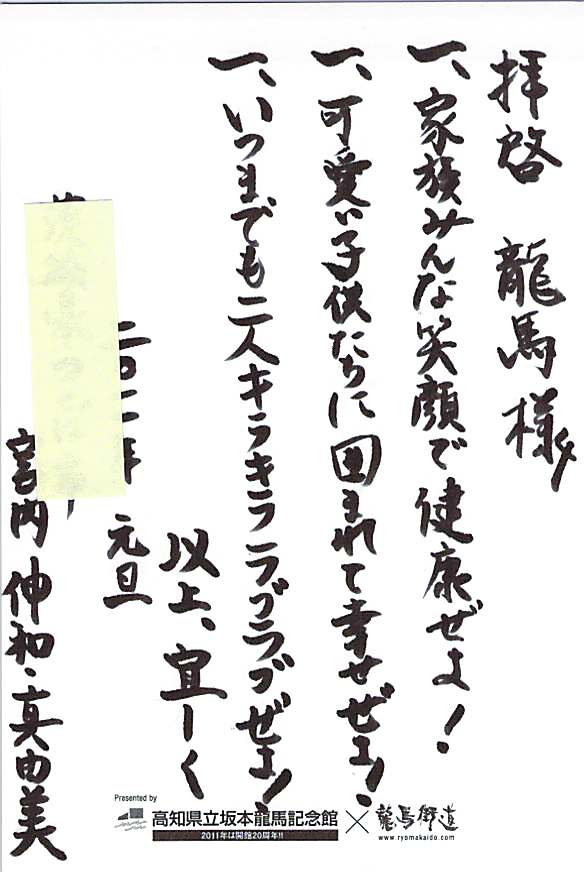 拝啓 龍馬様
一、家族みんな笑顔で健康ぜよ!
一、可愛い子供たちに囲まれて幸せぜよ!
一、いつまでも二人キラキララブラブぜよ!
以上、宜しく
二〇一二年 元旦
宮内 伸和・真由美
Presented by
高知県立坂本龍馬記念館
2011年は開館20周年!!
×
龍馬街道
www.ryomakaido.com